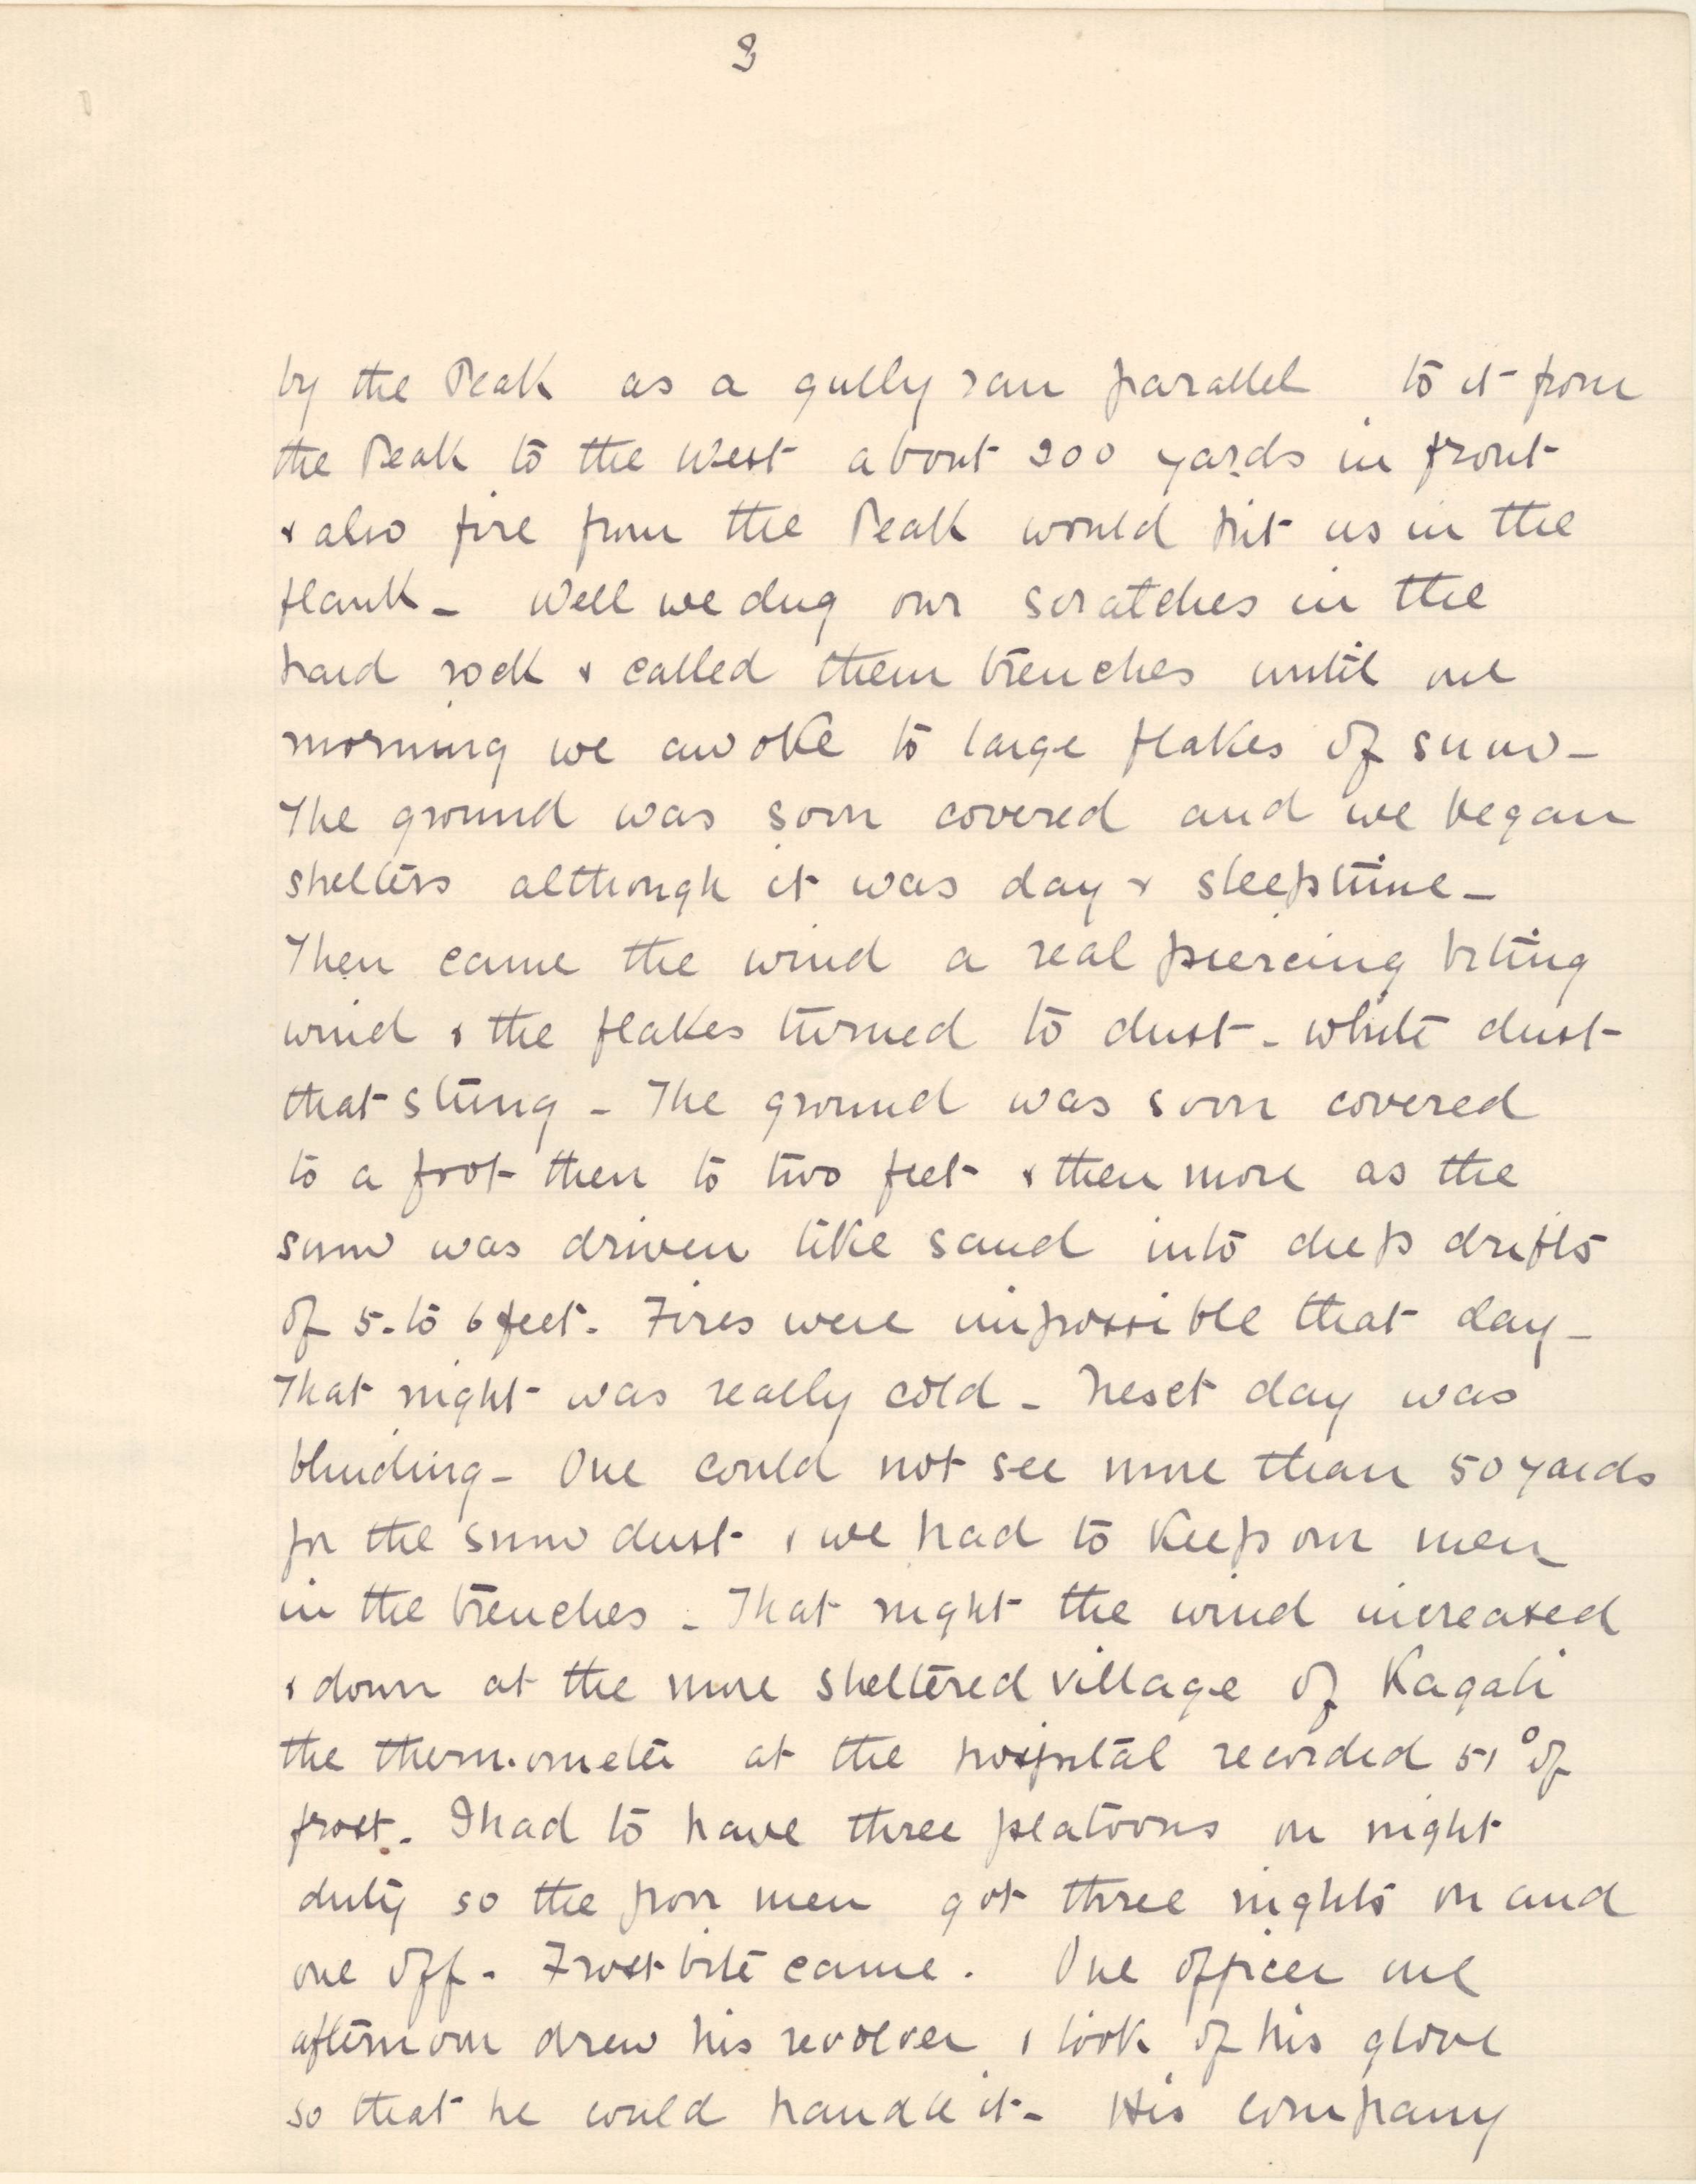 3
by the Peak as a gully ran parallel to it from
the Peak to the West about 200 yards in front
& also fire from the Peak would hit us in the
flank - Well we dug our scratches in the
hard rock & called them trenches until one
morning we awoke to large flakes of snow -
The ground was soon covered and we began
shelters although it was day & sleeptime -
Then came the wind a real piercing biting
wind & the flakes turned to dust - white dust
that stung - The ground was soon covered
to a foot then to two feet & then more as the
snow was driven like sand into deep drifts
of 5 - to 6 feet. Fires were impossible that day -
That night was really cold - Next day was
blinding - One could not see more than 50 yards
for the snow dust & we had to keep our men
in the trenches - That night the wind increased
& down at the more sheltered village of Kagali
the thermometer at the hospital recorded 51° of
frost. I had to have three platoons on night
duty so the poor men got three nights on and
one off. Frostbite came. One officer one
afternoon drew his revolver & took of his glove
so that he could handle it - His company